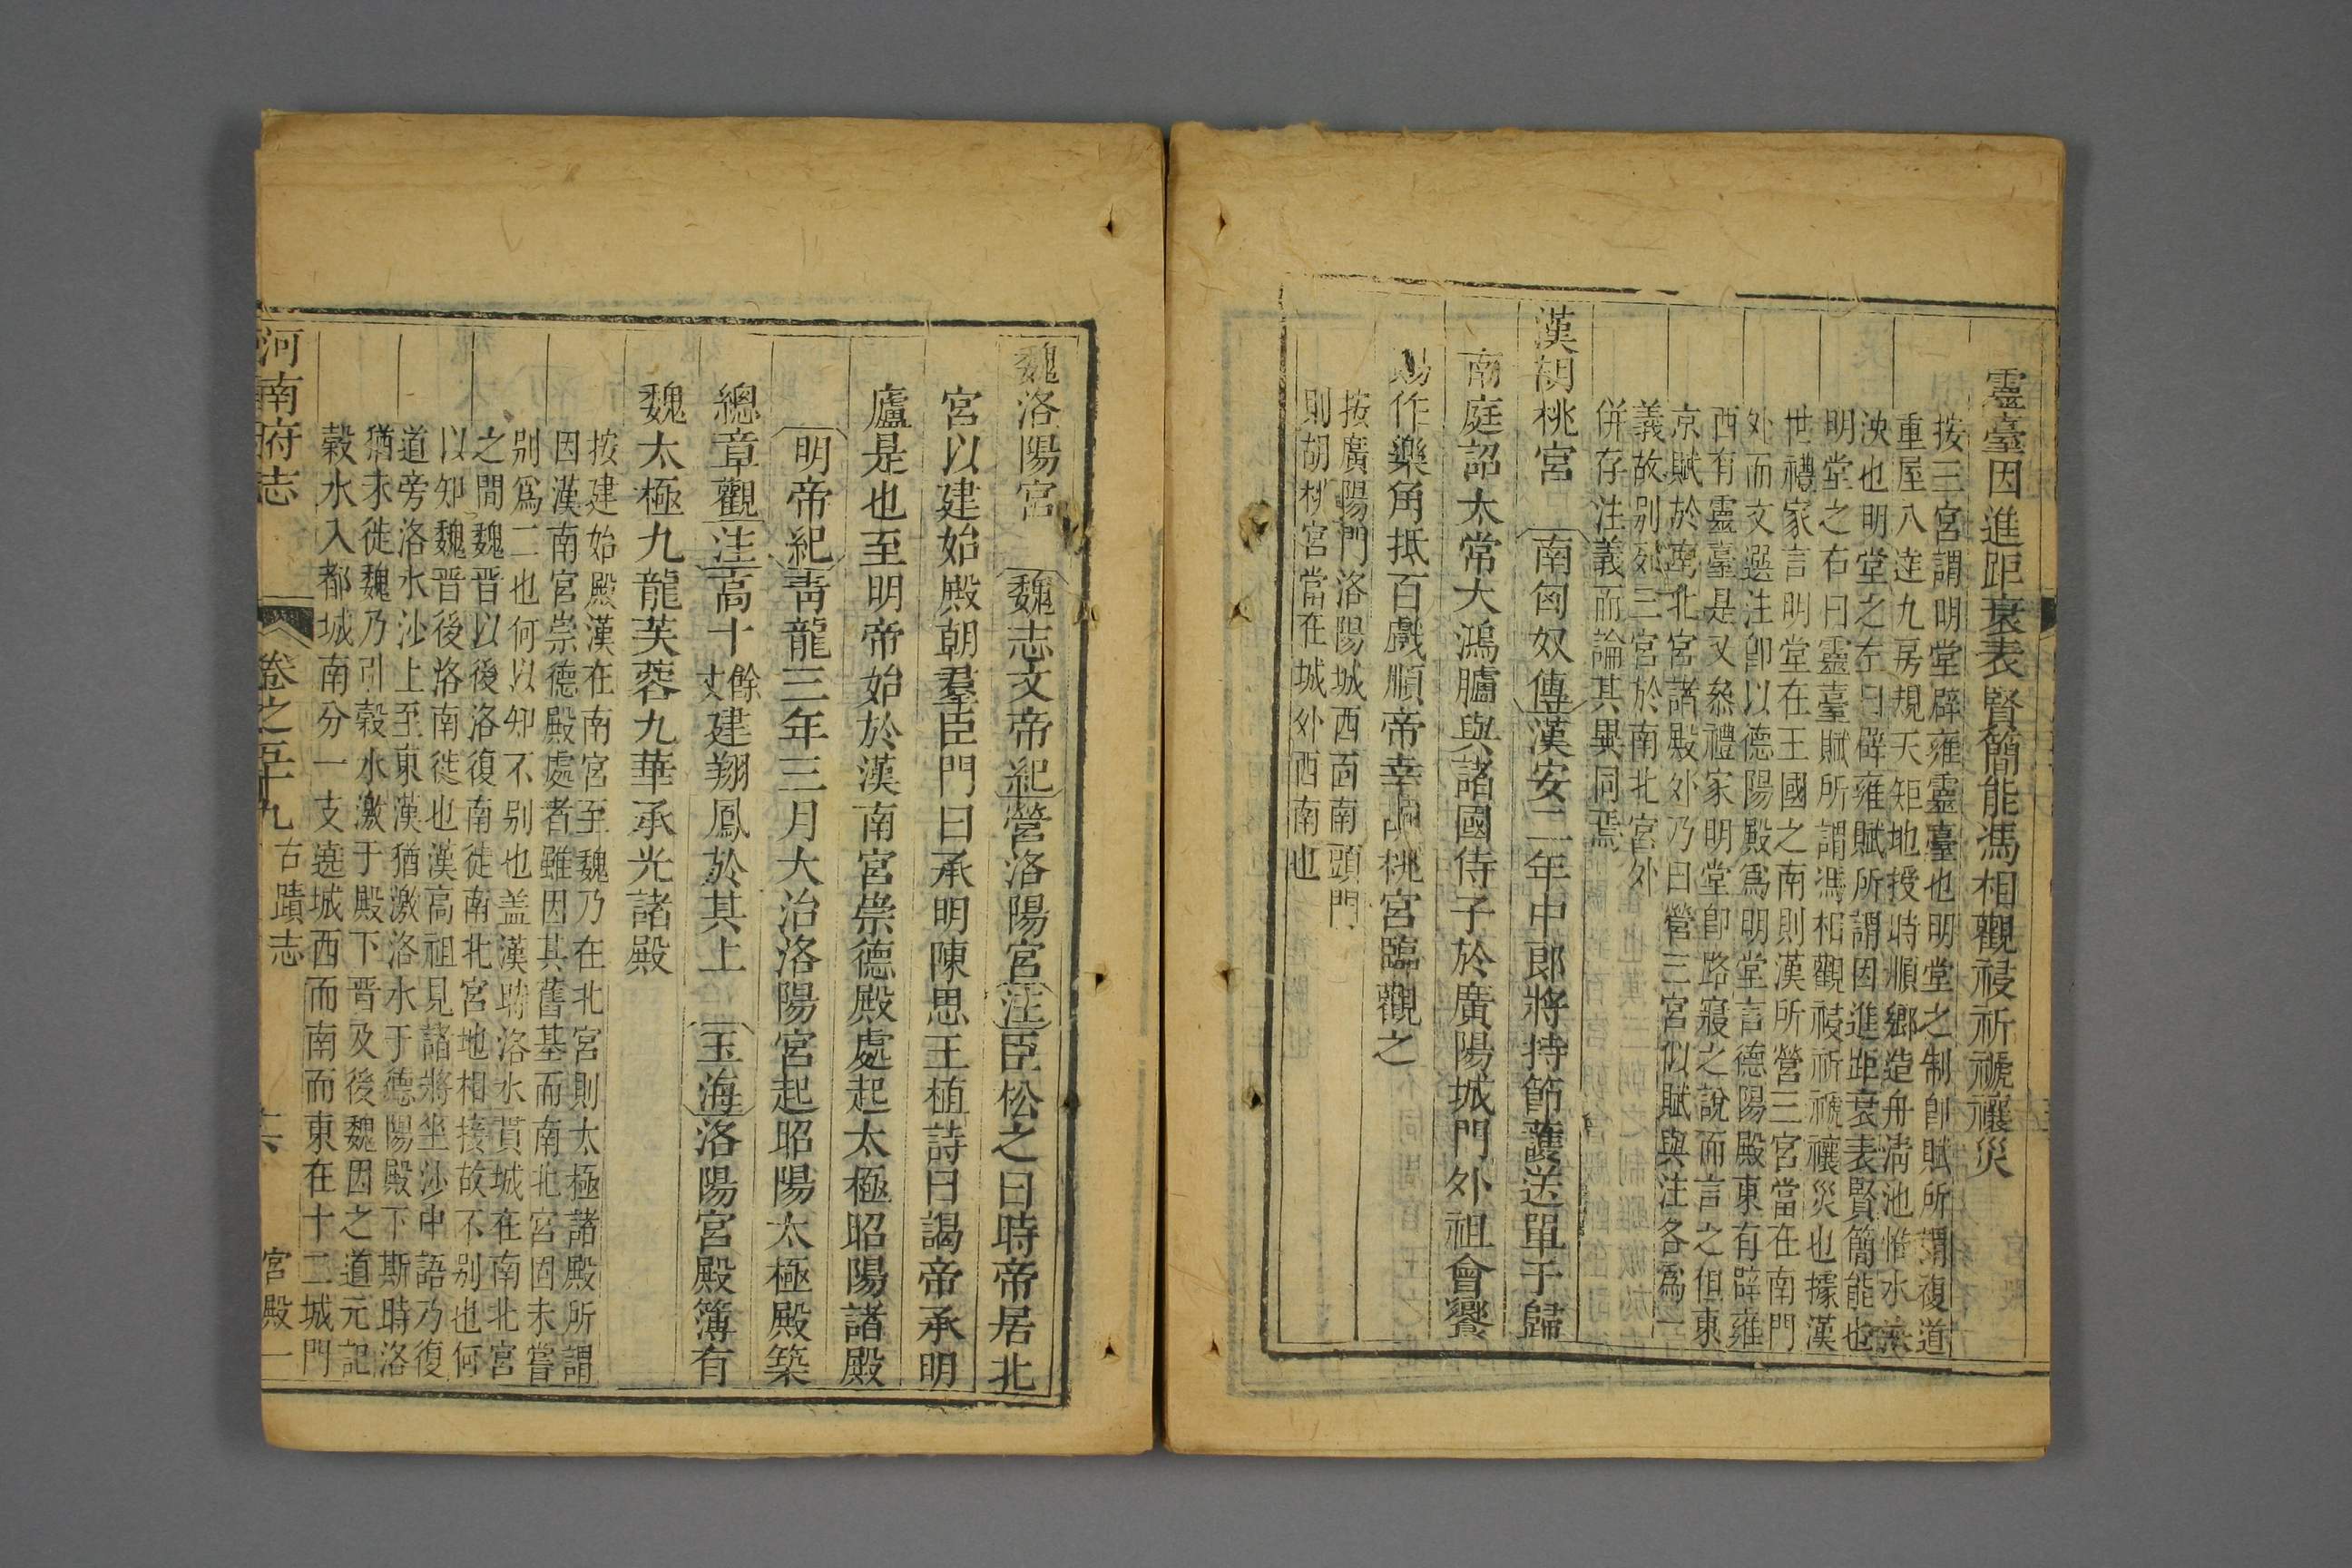 靈臺因進距衰表賢簡能馮相觀祲祈禠禳災
按三宮謂明堂辟雍靈臺也明堂之制卽賦所謂復道
重屋八達九房規天矩地授時順鄉造舟淸池惟水泱
泱也明堂之左曰辟雍賦所謂因進距衰表賢簡能也
明堂之右曰靈臺賦所謂馮相觀祲祈禠禳災也據漢
世禮家言明堂在王國之南則漢所營三宮當在南門
外而文選注卽以德陽殿爲明堂言德陽殿東有辟雍
西有靈臺是又叅禮家明堂卽路寢之說而言之但東
京賦於南北宮諸殿外乃曰營三宮似賦與注各爲一
義故别列三宮於南北宮外
併存注義而論其異同焉
漢胡桃宮　南匈奴傳漢安二年中郎將持節護送單于歸
南庭詔太常大鴻臚與諸國侍子於廣陽城門外祖會饗
賜作樂角抵百戲順帝幸胡桃宮臨觀之
按廣陽門洛陽城西面南頭門
則胡桃宮當在城外西南也
魏洛陽宮　魏志文帝紀營洛陽宮注臣松之曰時帝居北
宮以建始殿朝羣臣門曰承明陳思王植詩曰謁帝承明
廬是也至明帝始於漢南宮崇德殿處起太極昭陽諸殿
明帝紀靑龍三年三月大治洛陽宮起昭陽太極殿築
總章觀注高十餘丈建翔鳳於其上　玉海洛陽宮殿簿有
魏太極九龍芙蓉九華承光諸殿
按建始殿漢在南宮至魏乃在北宮則太極諸殿所謂
因漢南宮崇德殿處者雖因其舊基而南北宮固未嘗
别爲二也何以知不别也盖漢時洛水貫城在南北宮
之間魏晋以後洛復南徙南北宮地相接故不别也何
以知魏晋後洛南徙也漢高祖見諸將坐沙中語乃復
道旁洛水沙上至東漢猶激洛水于德陽殿下斯時洛
猶未徙魏乃引榖水激于殿下晋及後魏因之道元記
榖水入都城南分一支遶城西而南而東在十二城門
河南府志　卷之五十九　古蹟志　十六　宮殿一